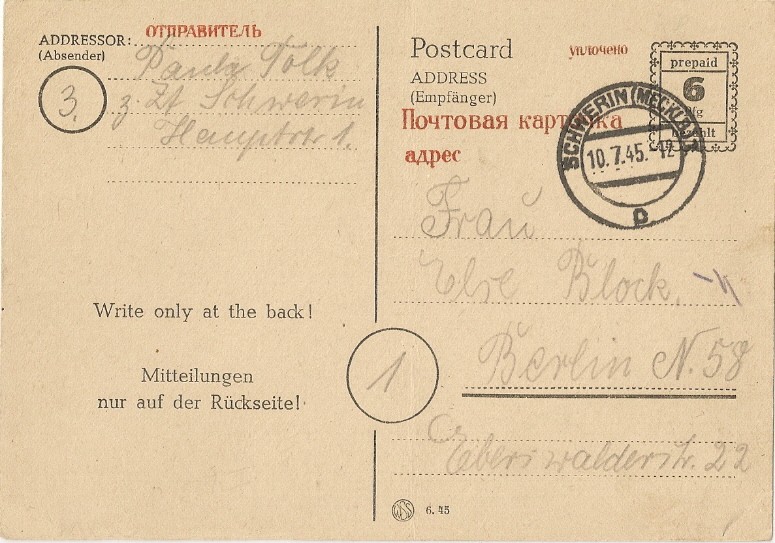 ADDRESSOR: ОТПРАВИТЕЛЬ
(Absender)
Paula Tolk
3.
z. Zt. Schwerin
1.
Write only at the back!
Mitteilungen
nur auf der Rückseite!
Postcard уплочено
ADDRESS
(Empfänger)
Почтовая карточка
адрес
prepaid
6
Pfg
bezahlt
SCHWERIN (MECKLB)
10.7.45.-12
D
Frau
Else Block,
1
Berlin N. 58
Eberswalderstr. 22
6. 45